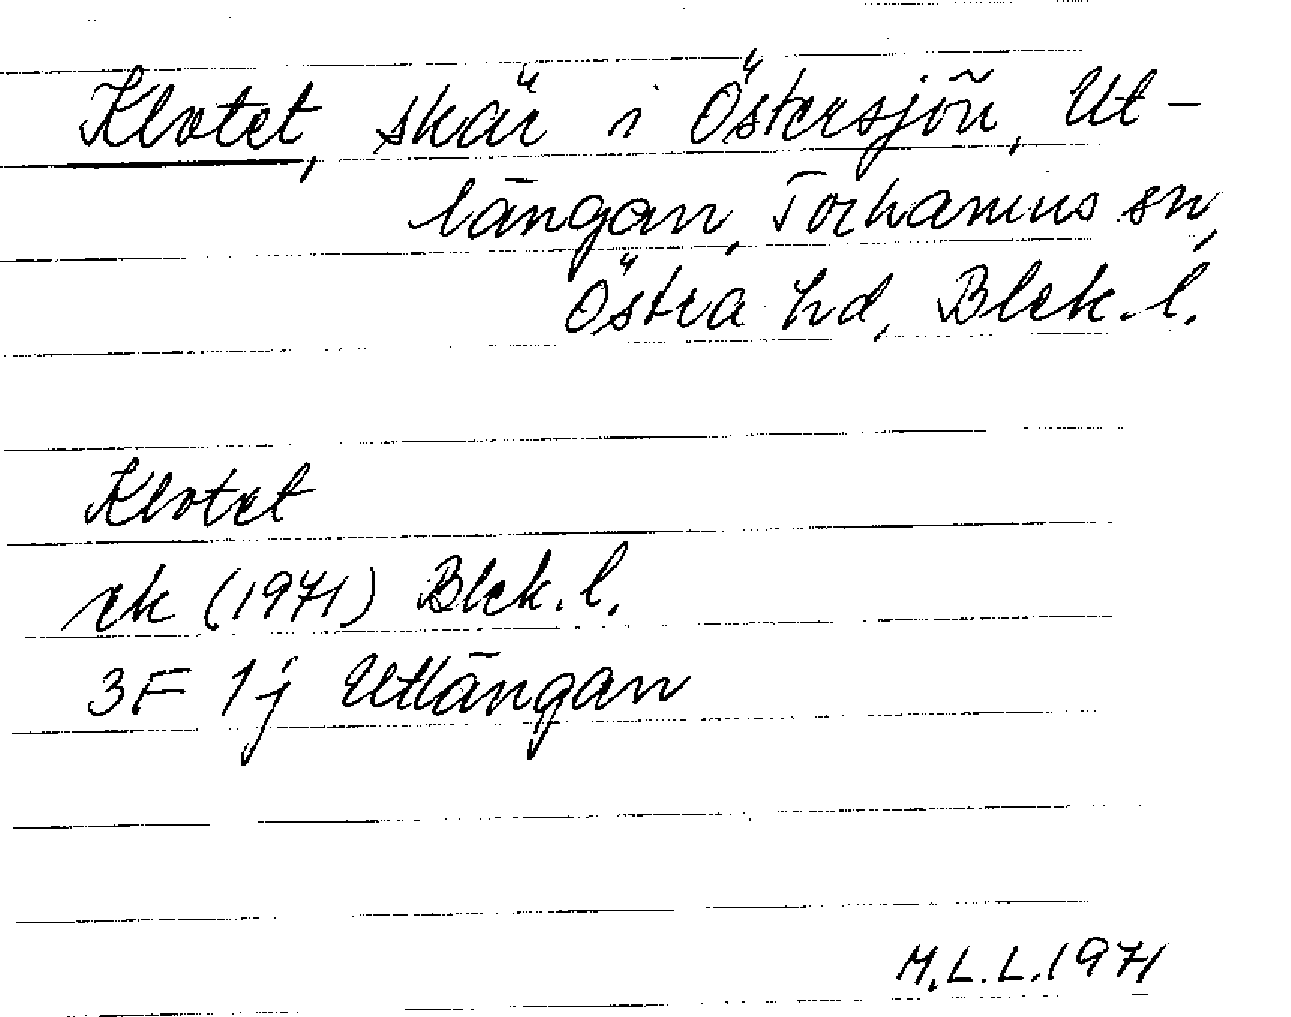 Klotet, skär i Östersjön, Ut-
längan, Torhamns sn,
Östra hd, Blek. l.
Klotet
ek (1971) Blek. l.
3F 1j Utlängan
M.L.L. 1971